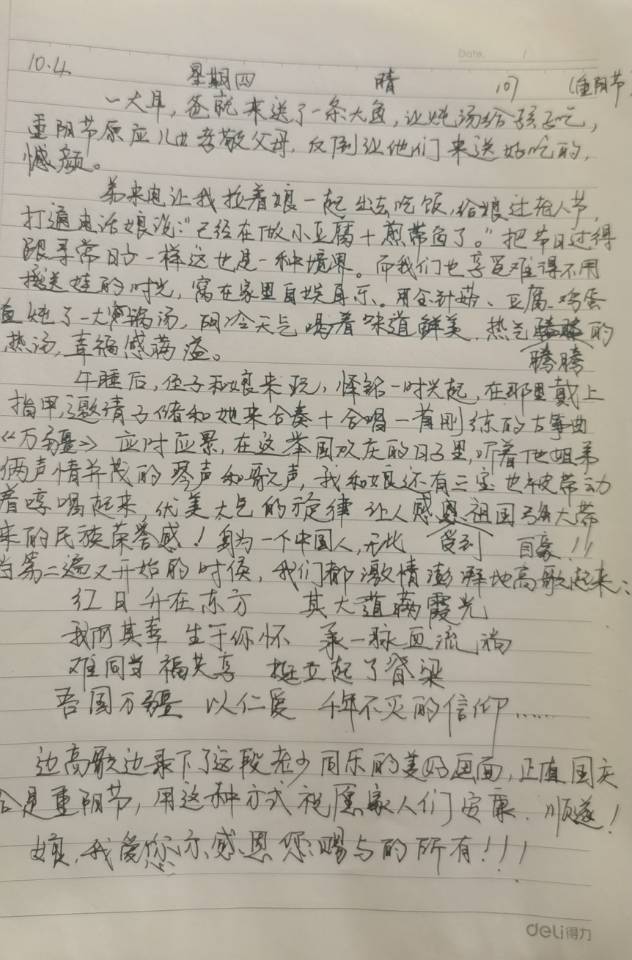 Date. /
10.4. 星期四 晴 (重阳节
一大早，爸就来送了一条大鱼，让炖汤给孩子吃，
重阳节原应儿女孝敬父母，反倒让他们来送好吃的，
憾颜。
弟来电让我拉着娘一起出去吃饭，给娘过老人节，
打通电话娘说：“已经在做小豆腐＋煎带鱼了。”把节日过得
跟寻常日子一样这也是一种境界。而我们也享受难得不用
接送娃的时光，窝在家里自娱自乐。用金针菇、豆腐、鸡蛋
炖了一大锅汤，阴冷天气喝着味道鲜美、热气 的
腾腾
热汤，幸福感满溢。
午睡后，侄子和娘来玩，怿铭一时兴起，在那里戴上
指甲，邀请子偌和她来合奏＋合唱一首刚练的古筝曲
《万疆》应时应景，在这举国欢庆的日子里，听着他姐弟
俩声情并茂的琴声和歌声，我和娘还有三宝也被带动
着哼唱起来，优美大气的旋律让人感恩祖国强大带
来的民族荣誉感！身为一个中国人，无比 受到 自豪！！
当第二遍又开始的时候，我们都激情澎湃地高歌起来：
红日升在东方 其大道满霞光
我何其幸 生于你怀 承一脉血流淌
难同当 福共享 挺立起了脊梁
吾国万疆 以仁爱 千年不灭的信仰……
边高歌边录下了这段老少同乐的美好画面，正值国庆
又是重阳节，用这种方式祝愿家人们安康、顺遂！
娘，我爱您，感恩您赐与的所有！！！
deli得力